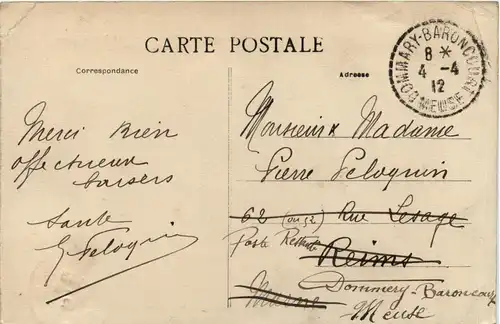 CARTE POSTALE
Correspondance
Adresse
DOMMARY-BARONCOURT
8 *
4 -4
12
MEUSE
Merci bien
affectueux
baisers
Sante
G Peloquin
Monsieur & Madame
Pierre Peloquin
62 (ou 52) Rue Lesage
Poste Restante Reims
Marne
Dommery-Baroncourt
Meuse